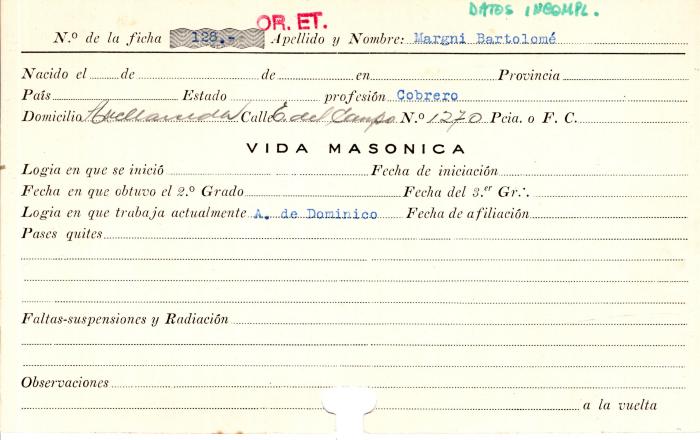 DATOS INCOMPL.
OR. ET.
N.º de la ficha 128.- Apellido y Nombre: Margni Bartolomé
Nacido el de de en Provincia
País Estado profesión Cobrero
Domicilio Avellaneda Calle E. del Campo N.º 1270 Pcia. o F. C.
VIDA MASONICA
Logia en que se inició Fecha de iniciación
Fecha en que obtuvo el 2.º Grado Fecha del 3.er Gr∴
Logia en que trabaja actualmente A. de Dominico Fecha de afiliación
Pases quites
Faltas-suspensiones y Radiación
Observaciones
a la vuelta